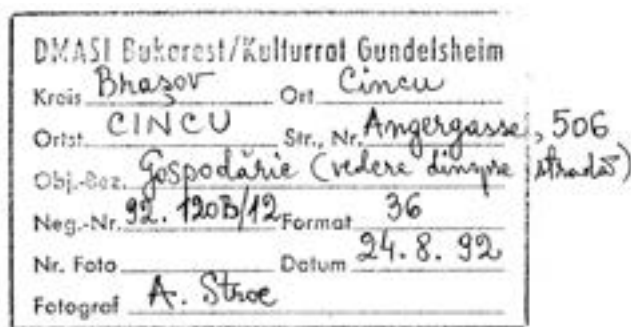 DMASI Bukarest/Kulturrat Gundelsheim
Kreis Brașov Ort Cincu
Ortst. CINCU Str., Nr. Angergasse, 506
Obj.-Bez. Gospodărie (vedere dinspre stradă)
Neg.-Nr. 92.120B/12 Format 36
Nr. Foto Datum 24.8.92
Fotograf A. Stroe